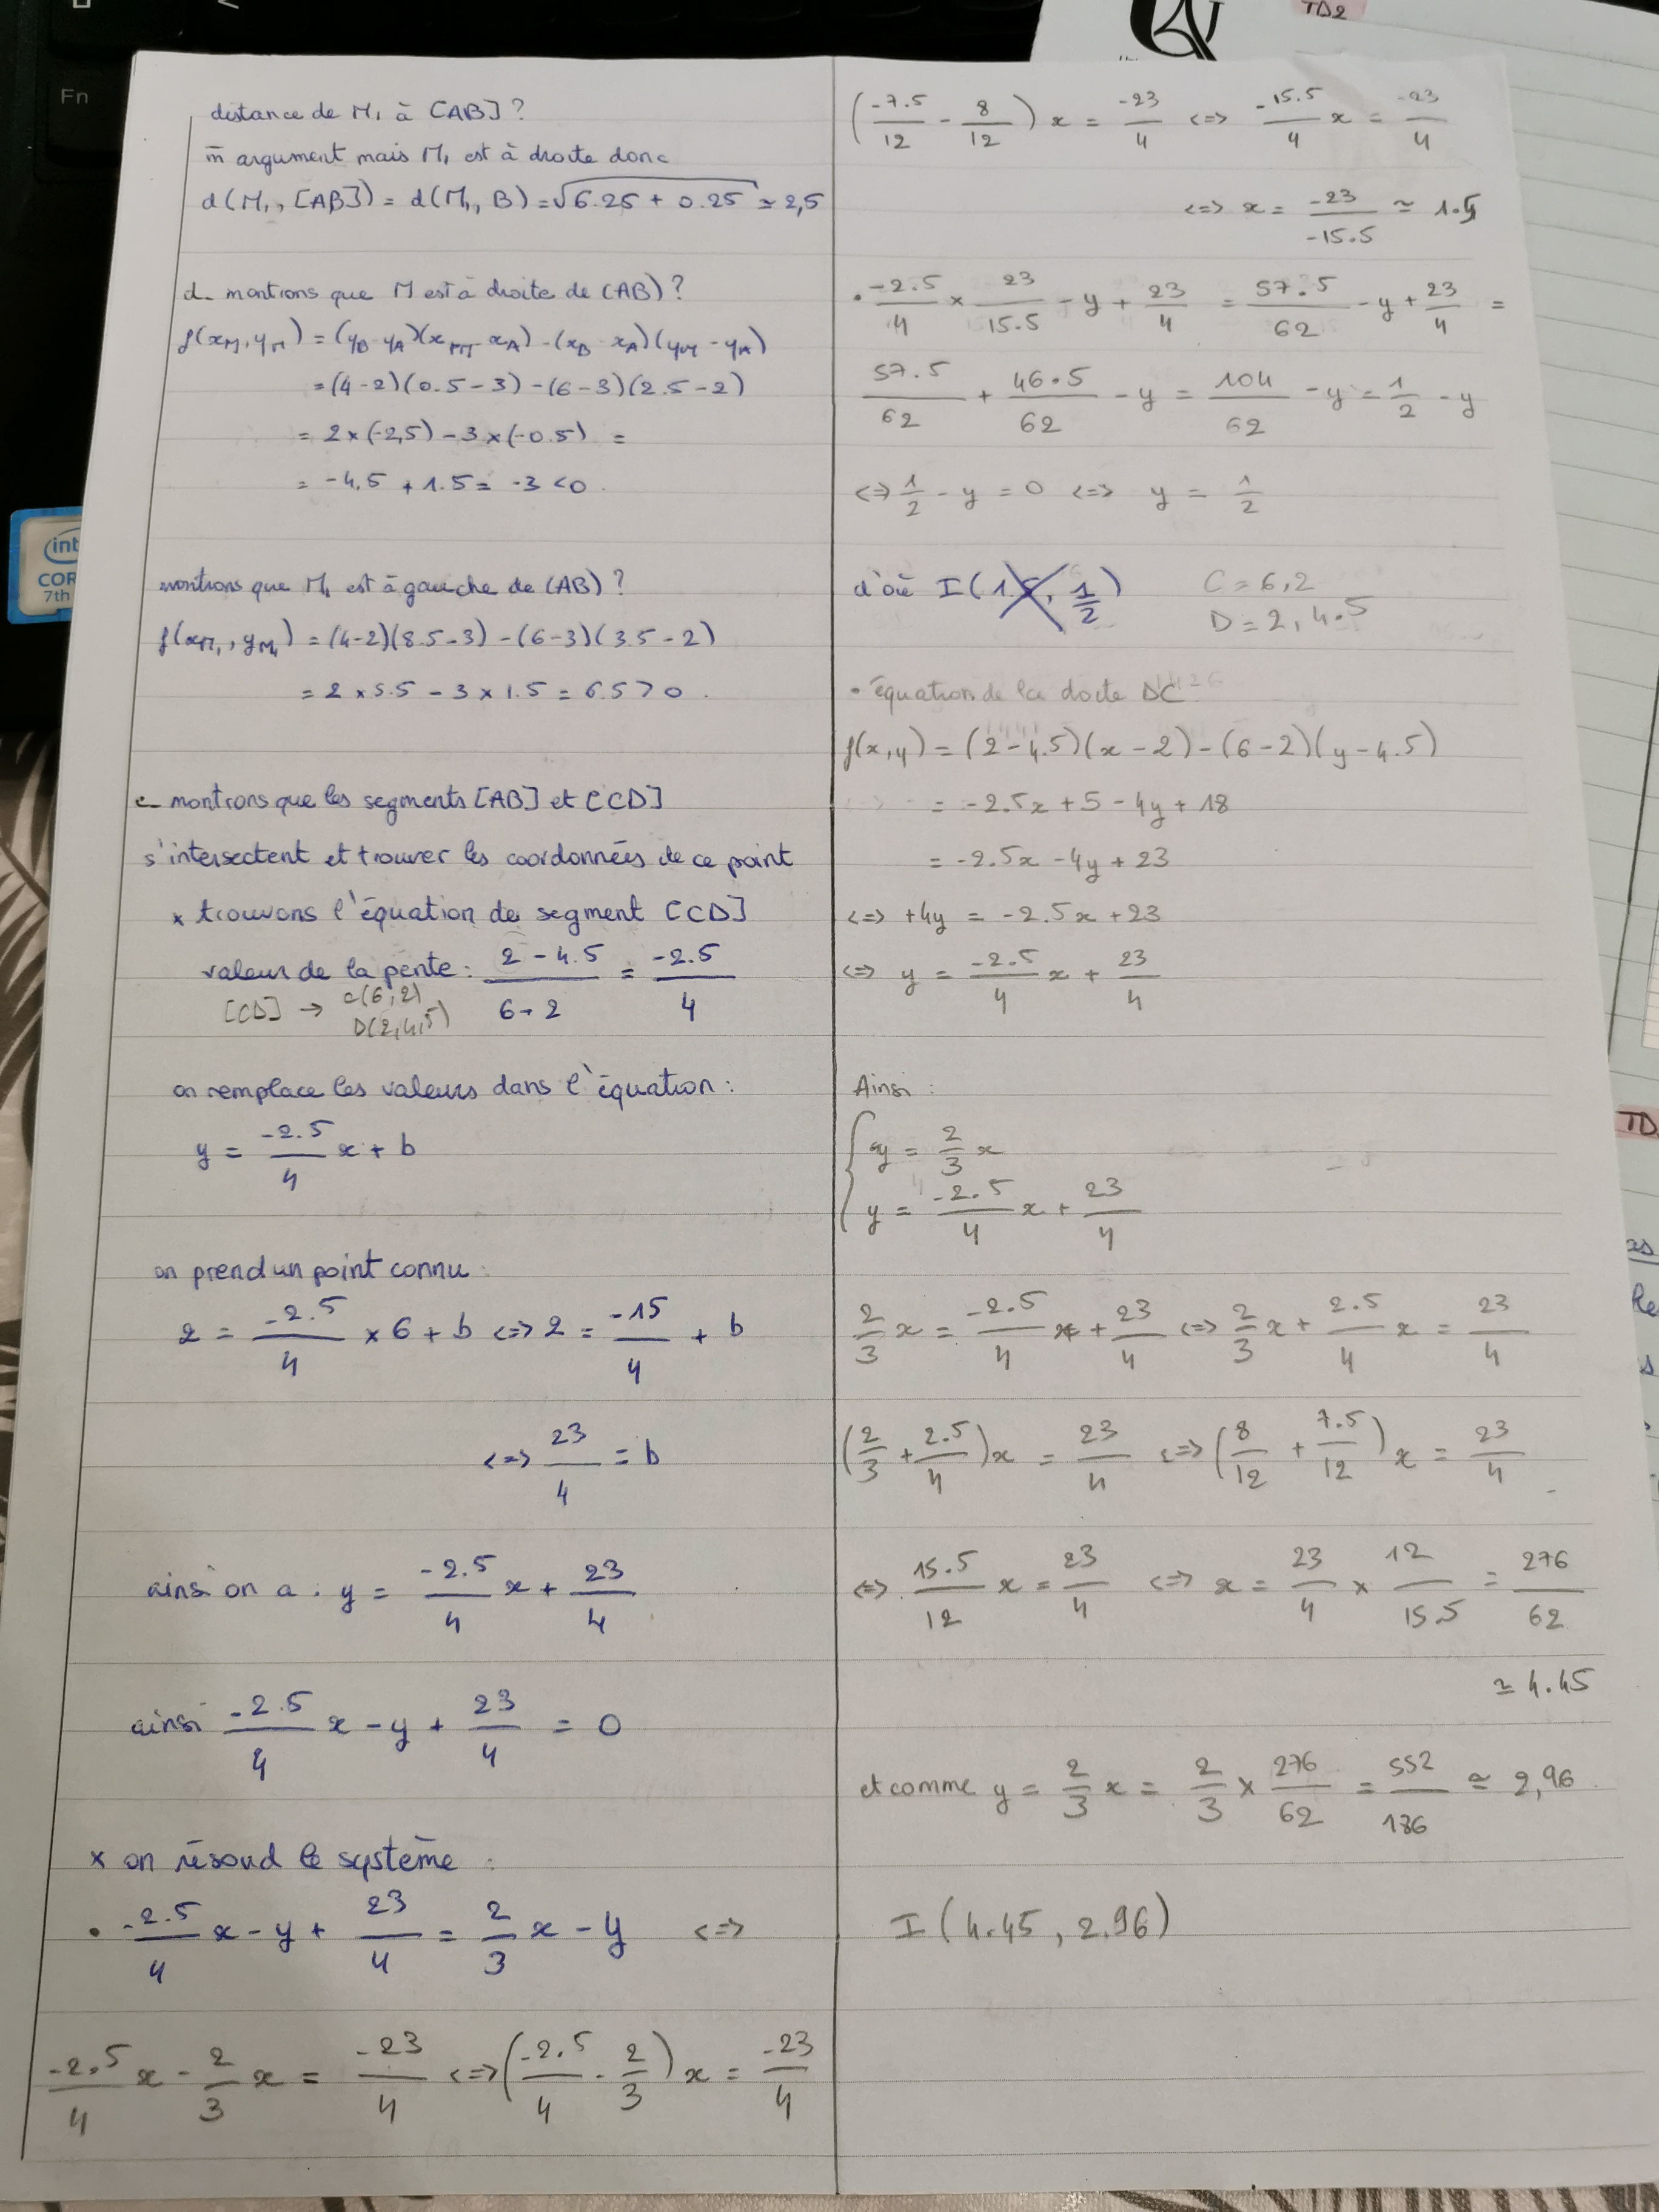 Fn
int
COR
7th
TD2
distance de M₁ à [AB] ?
m̄ argument mais M₁ est à droite donc
d(M₁, [AB]) = d(M₁, B) = √(6.25 + 0.25) ≃ 2,5
d_ montrons que M est à droite de (AB) ?
f(x_M, y_M) = (y_B - y_A)(x_M - x_A) - (x_B - x_A)(y_M - y_A)
= (4-2)(0.5-3) - (6-3)(2.5-2)
= 2×(-2,5) - 3×(-0.5) =
= -4.5 + 1.5 = -3 < 0.
montrons que M₁ est à gauche de (AB) ?
f(x_M₁, y_M₁) = (4-2)(8.5-3) - (6-3)(3.5-2)
= 2 × 5.5 - 3 × 1.5 = 6.5 > 0.
e_ montrons que les segments [AB] et [CD]
s'intersectent et trouver les coordonnées de ce point
× trouvons l'équation de segment [CD]
valeur de la pente : (2 - 4.5)/(6 - 2) = -2.5/4
[CD] → C(6,2)
D(2,4,5)
on remplace les valeurs dans l'équation :
y = -2.5/4 x + b
on prend un point connu :
2 = -2.5/4 × 6 + b <=> 2 = -15/4 + b
<=> 23/4 = b
ainsi on a : y = -2.5/4 x + 23/4
ainsi -2.5/4 x - y + 23/4 = 0
× on résoud le système :
• -2.5/4 x - y + 23/4 = 2/3 x - y <=>
-2.5/4 x - 2/3 x = -23/4 <=> (-2.5/4 - 2/3) x = -23/4
(-7.5/12 - 8/12) x = -23/4 <=> -15.5/4 x = -23/4
<=> x = -23/-15.5 ≃ 1.5
• -2.5/4 × 23/15.5 - y + 23/4 = 57.5/62 - y + 23/4 =
57.5/62 + 46.5/62 - y = 104/62 - y = 1/2 - y
<=> 1/2 - y = 0 <=> y = 1/2
d'où I(1.5, 1/2)
C = 6,2
D = 2, 4.5
• équation de la doite DC
f(x,y) = (2 - 4.5)(x - 2) - (6 - 2)(y - 4.5)
= -2.5x + 5 - 4y + 18
= -2.5x - 4y + 23
<=> +4y = -2.5x + 23
<=> y = -2.5/4 x + 23/4
Ainsi :
{ y = 2/3 x
{ y = -2.5/4 x + 23/4
2/3 x = -2.5/4 x + 23/4 <=> 2/3 x + 2.5/4 x = 23/4
(2/3 + 2.5/4) x = 23/4 <=> (8/12 + 7.5/12) x = 23/4
<=> 15.5/12 x = 23/4 <=> x = 23/4 × 12/15.5 = 276/62
≃ 4.45
et comme y = 2/3 x = 2/3 × 276/62 = 552/186 ≃ 2,96
I(4.45, 2.96)
TD